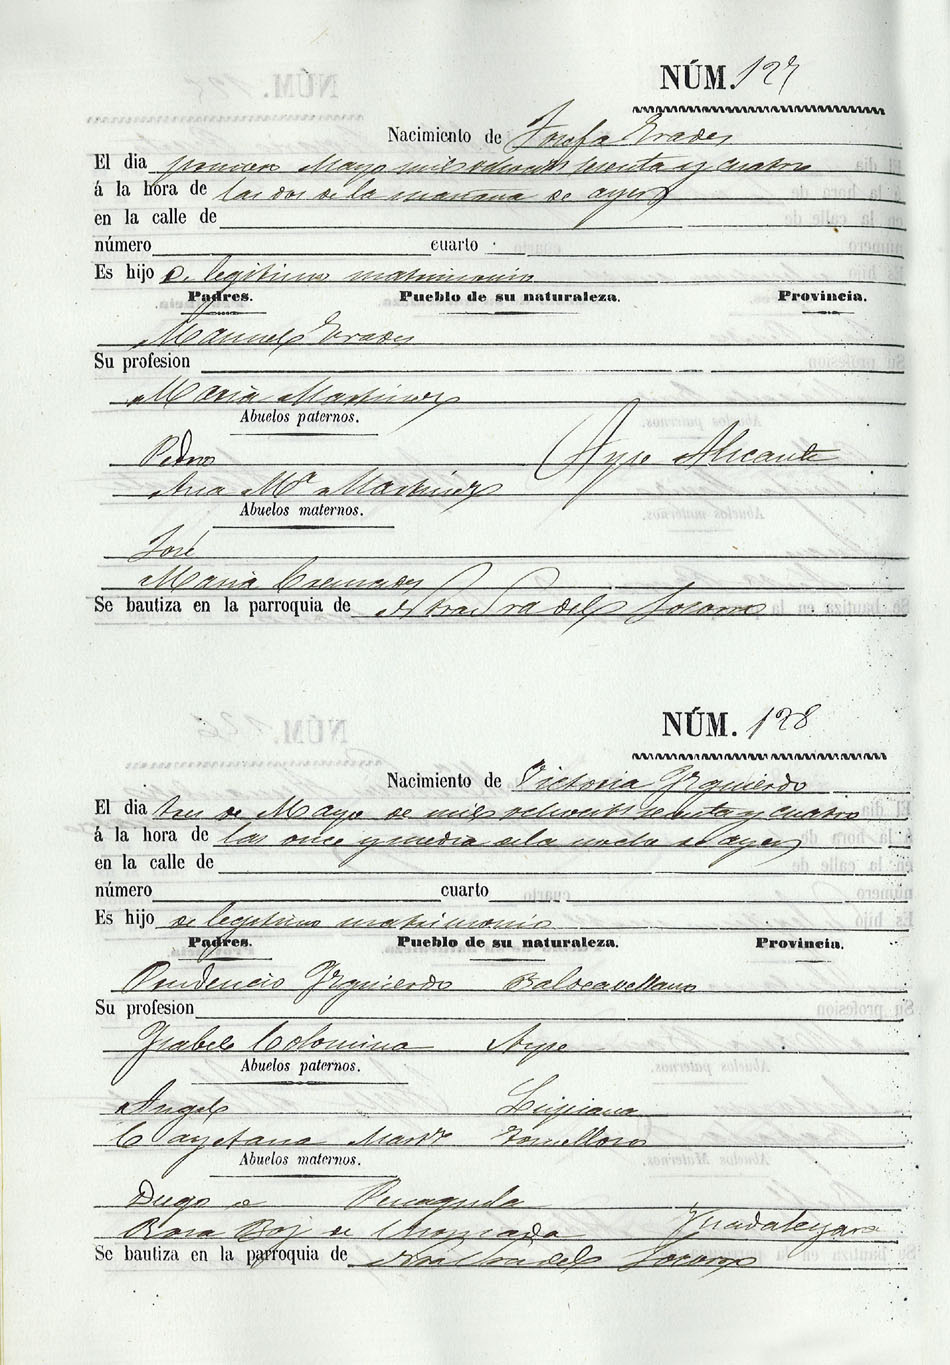 NÚM. 127
Nacimiento de Josefa Erades
El dia primero Mayo mil ochocts sesenta y cuatro
á la hora de las dos de la mañana de ayer
en la calle de
número cuarto
Es hijo de legitimo matrimonio
Padres. Pueblo de su naturaleza. Provincia.
Manuel Erades
Su profesion
Maria Martinez
Abuelos paternos.
Pedro Aspe Alicante
Ana Mª Martinez
Abuelos maternos.
José
Maria Cremades
Se bautiza en la parroquia de Ntra Sra del Socorro
NÚM. 128
Nacimiento de Victoria Yzquierdo
El dia tres de Mayo de mil ochocts sesenta y cuatro
á la hora de las once y media de la noche de ayer
en la calle de
número cuarto
Es hijo de legitimo matrimonio
Padres. Pueblo de su naturaleza. Provincia.
Prudencio Yzquierdo
Su profesion
Ysabel Colomina Aspe
Abuelos paternos.
Angel Lupiana
Cayetana Martz
Abuelos maternos.
Diego
Rosa Guadalajara
Se bautiza en la parroquia de Ntra Sra del Socorro